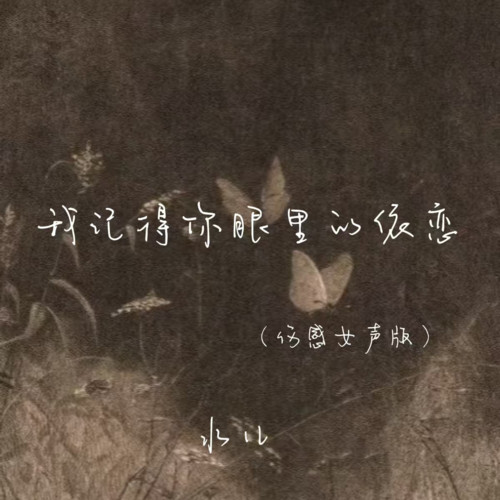 我记得你眼里的依恋
（伤感女声版）
水儿